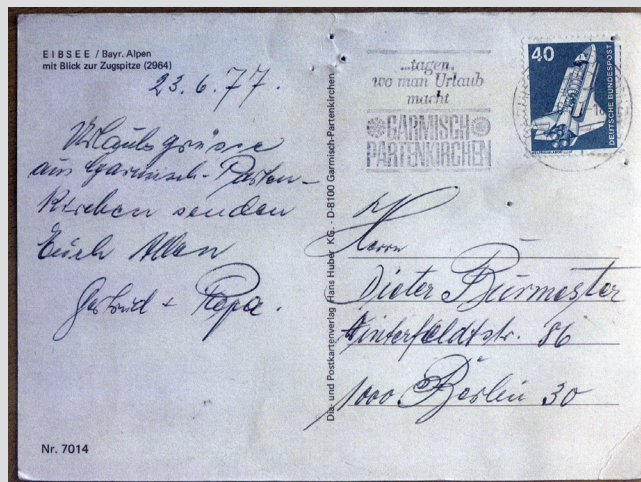 EIBSEE / Bayr. Alpen
mit Blick zur Zugspitze (2964)
23.6.77.
Urlaubsgrüsse
aus Garmisch-Parten-
Kirchen senden
Euch Allen
Gertrud + Papa.
Nr. 7014
Dia- und Postkartenverlag Hans Huber KG. - D-8100 Garmisch-Partenkirchen
...tagen,
wo man Urlaub
macht
GARMISCH
PARTENKIRCHEN
40
DEUTSCHE BUNDESPOST
Herrn
Dieter Burmester
Winterfeldtstr. 86
1000 Berlin 30